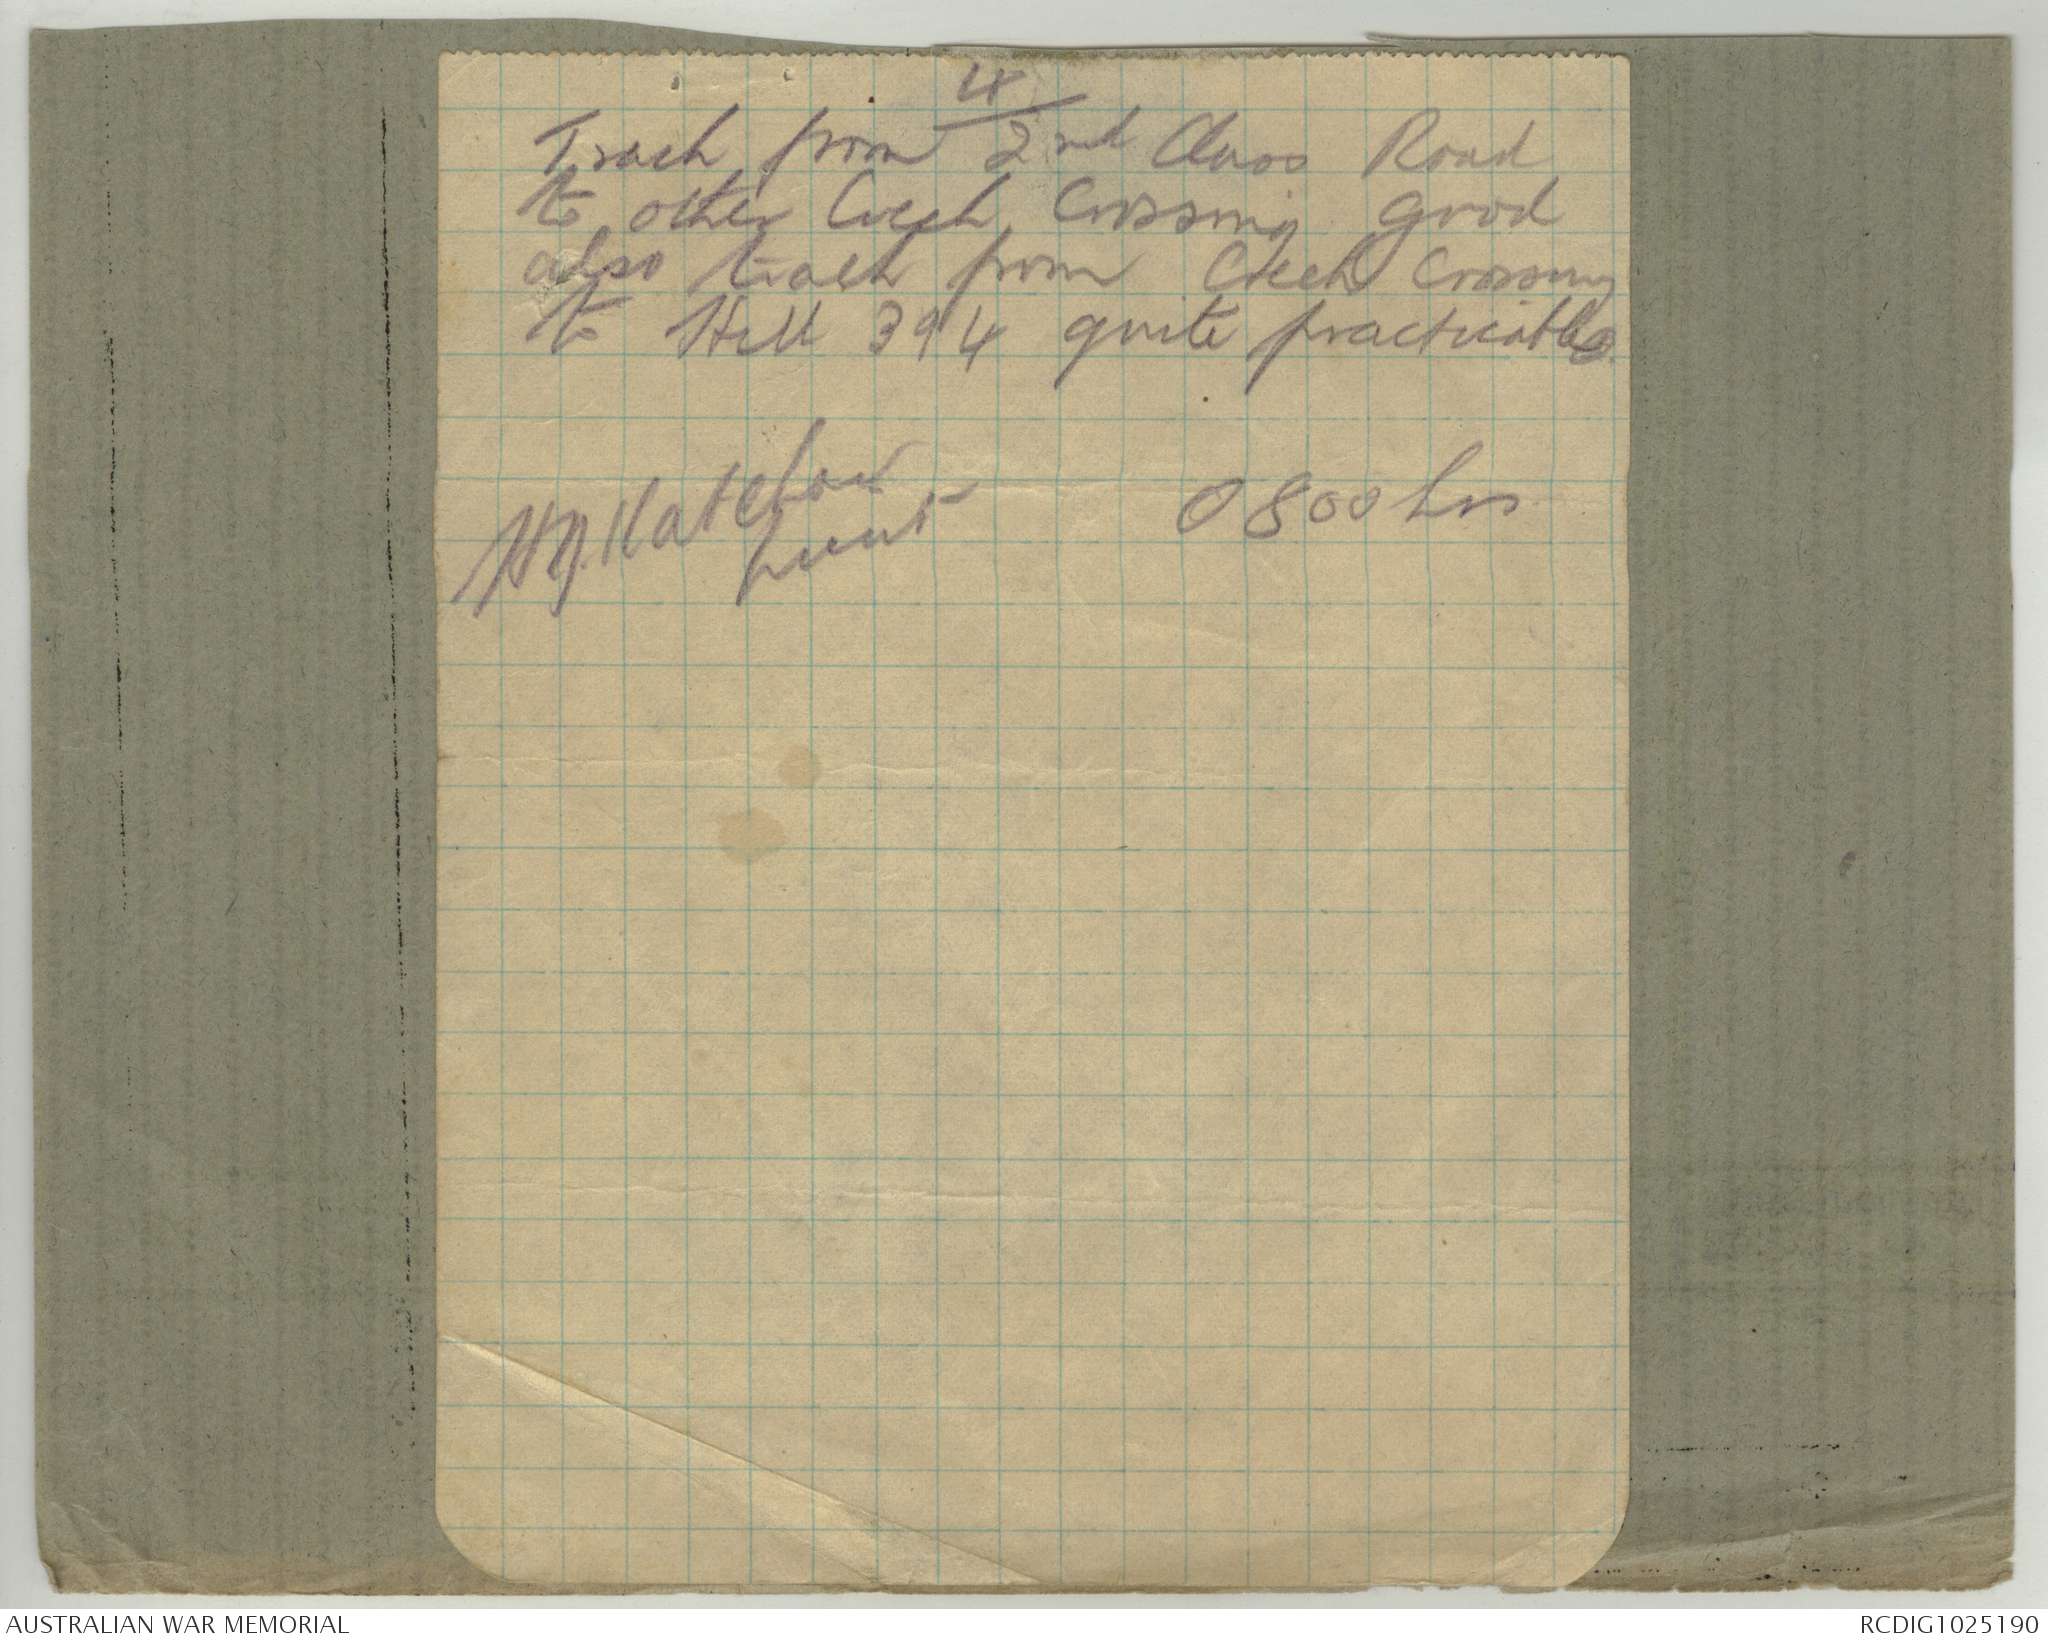 4
Track from 2nd Class Road
to other Creek Crossing good
also track from Creek Crossing
to Hill 394 quite practicable.
0800 hrs
Lieut
AUSTRALIAN WAR MEMORIAL
RCDIG1025190